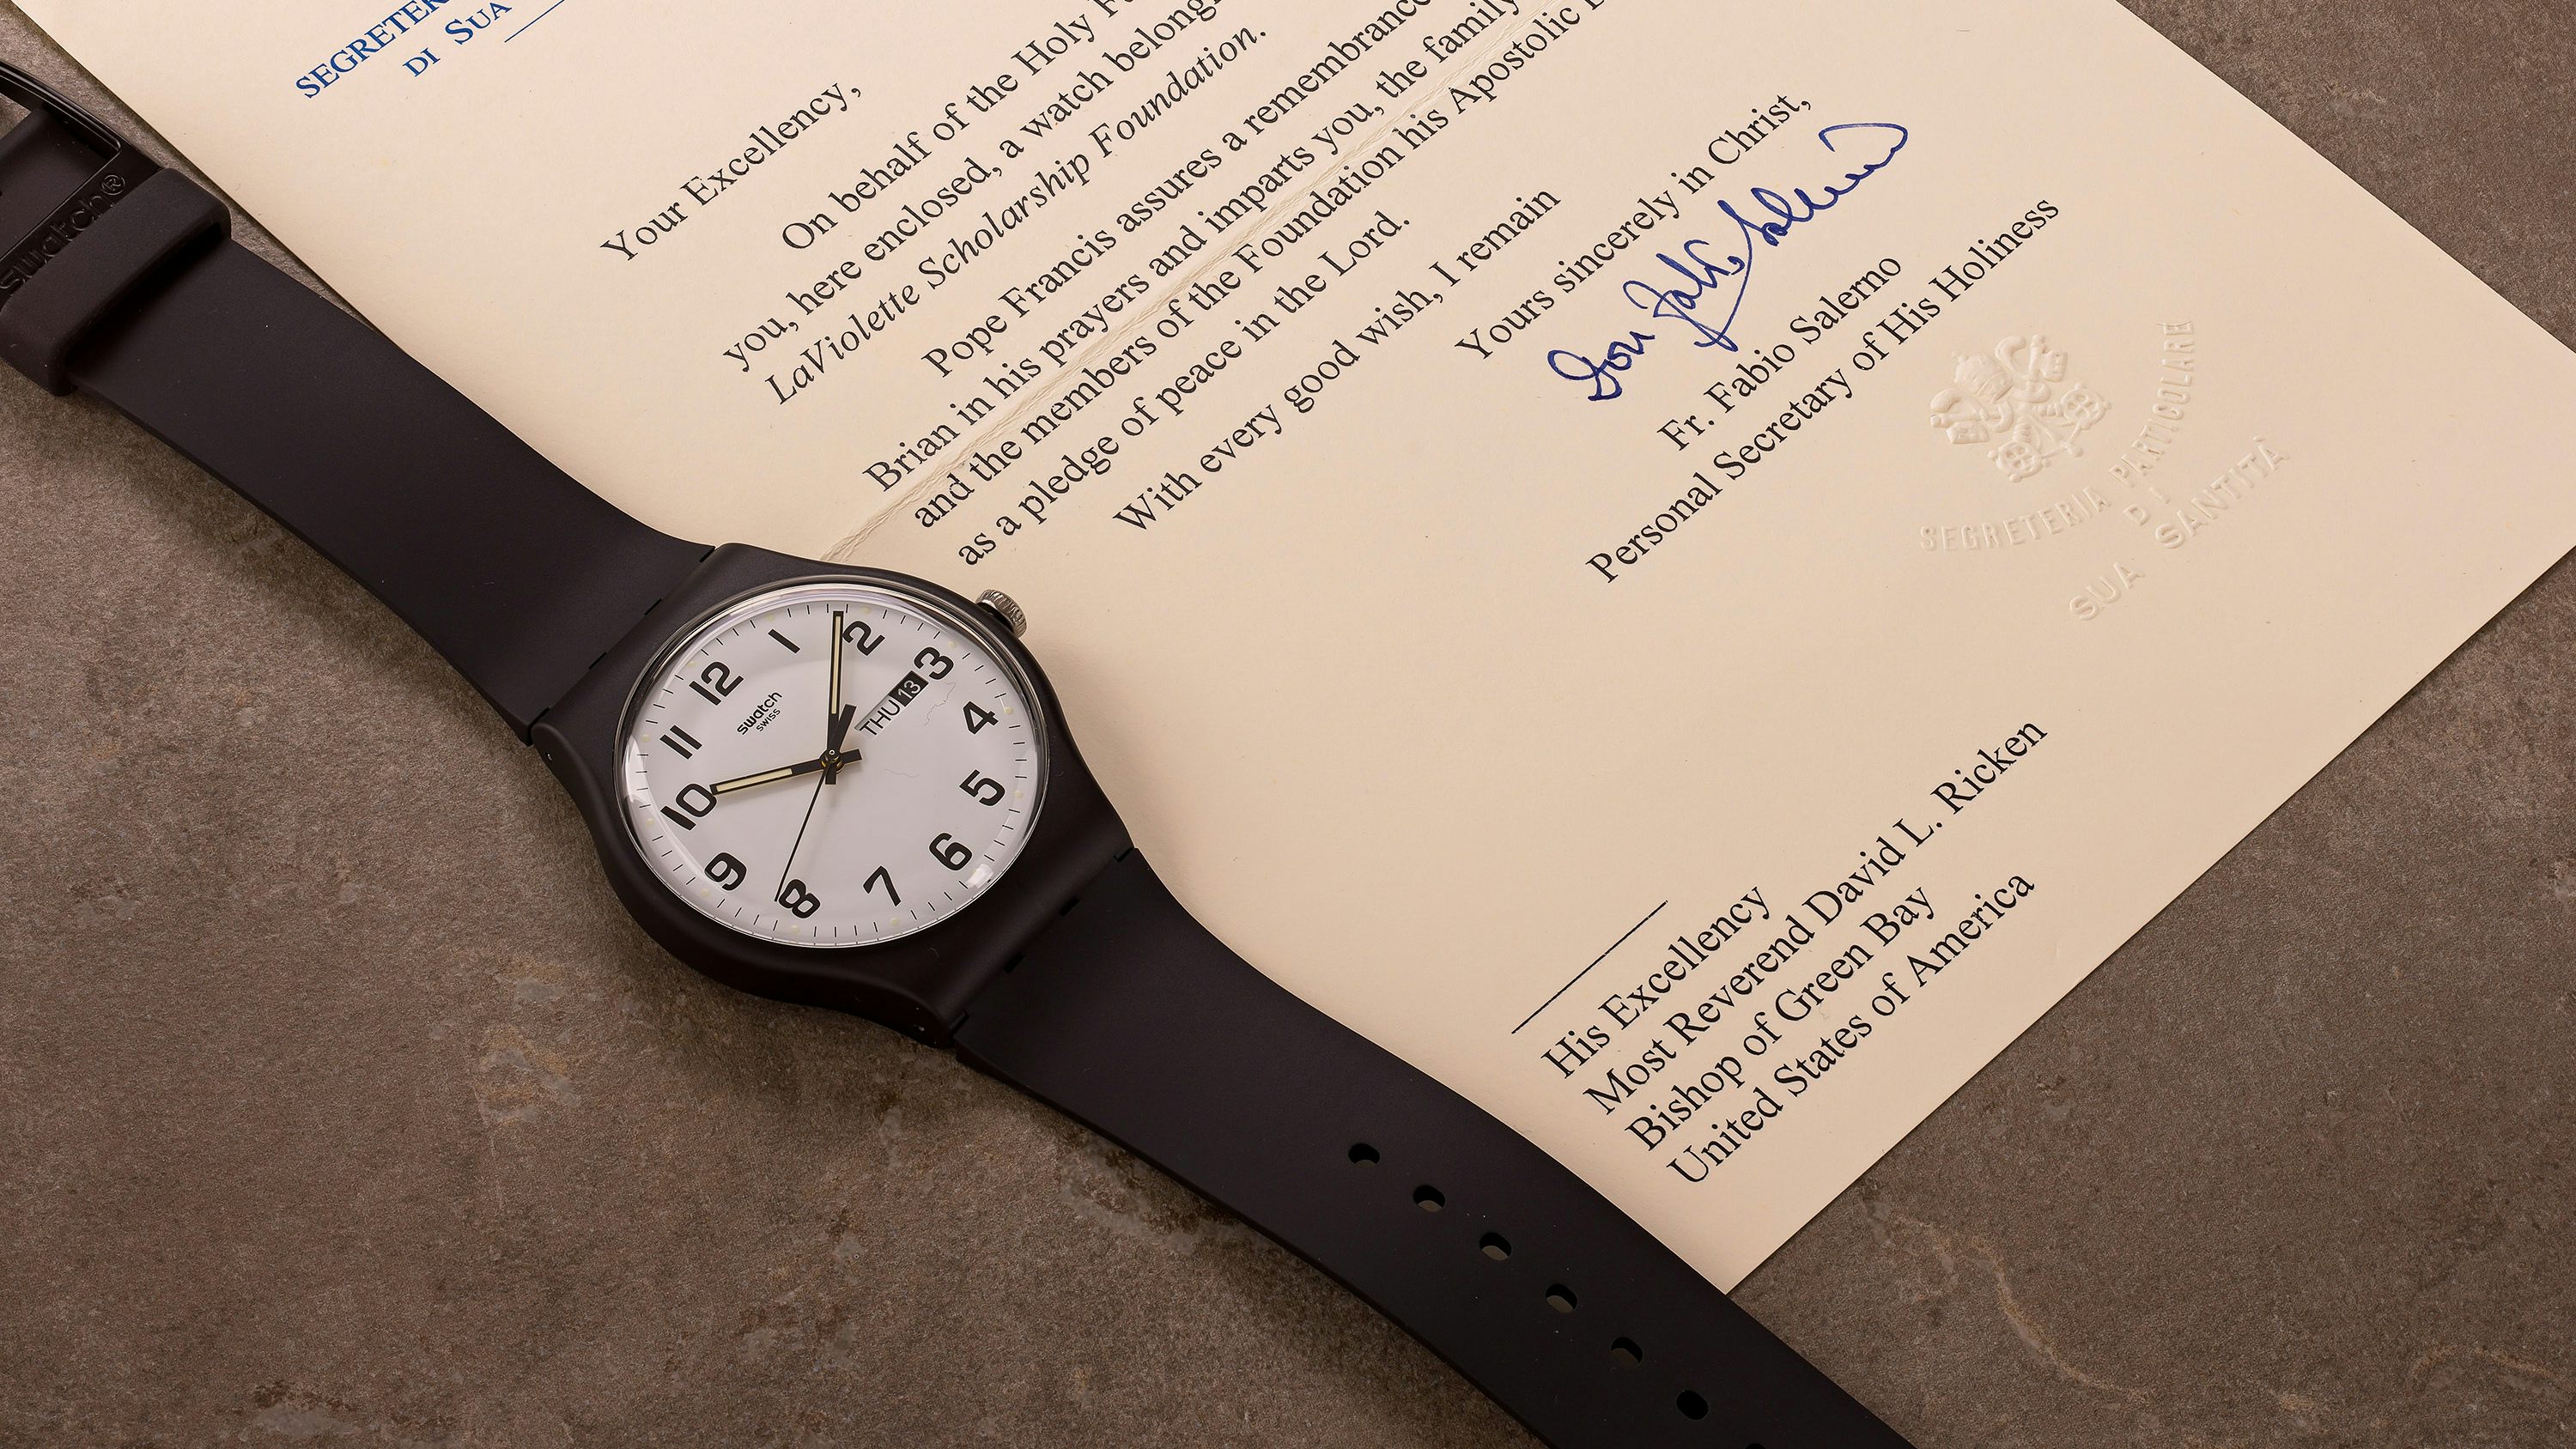 SEGRETER
DI SUA
Your Excellency,
On behalf of the Holy F
you, here enclosed, a watch belongi
LaViolette Scholarship Foundation.
Pope Francis assures a remembrance
Brian in his prayers and imparts you, the family
and the members of the Foundation his Apostolic
as a pledge of peace in the Lord.
With every good wish, I remain
Yours sincerely in Christ,
Fr. Fabio Salerno
Personal Secretary of His Holiness
SEGRETERIA PARTICOLARE
DI
SUA SANTITÀ
His Excellency
Most Reverend David L. Ricken
Bishop of Green Bay
United States of America
swatch®
swatch
SWISS
THU 13
12
1
2
3
4
5
6
7
8
9
10
11